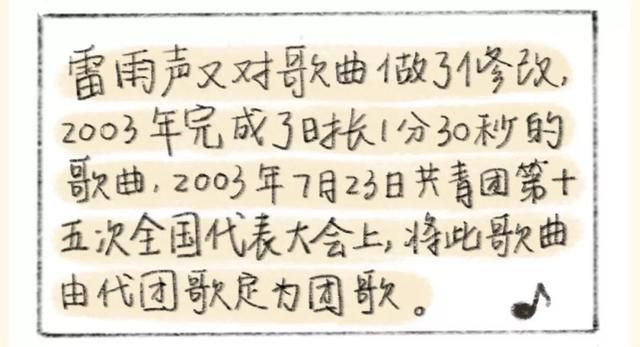 雷雨声又对歌曲做了修改,
2003年完成了时长1分30秒的
歌曲,2003年7月23日共青团第十
五次全国代表大会上,将此歌曲
由代团歌定为团歌。